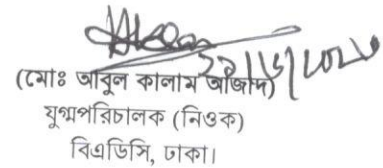 (মোঃ আবুল কালাম আজাদ)
যুগ্মপরিচালক (নিওক)
বিএডিসি, ঢাকা।